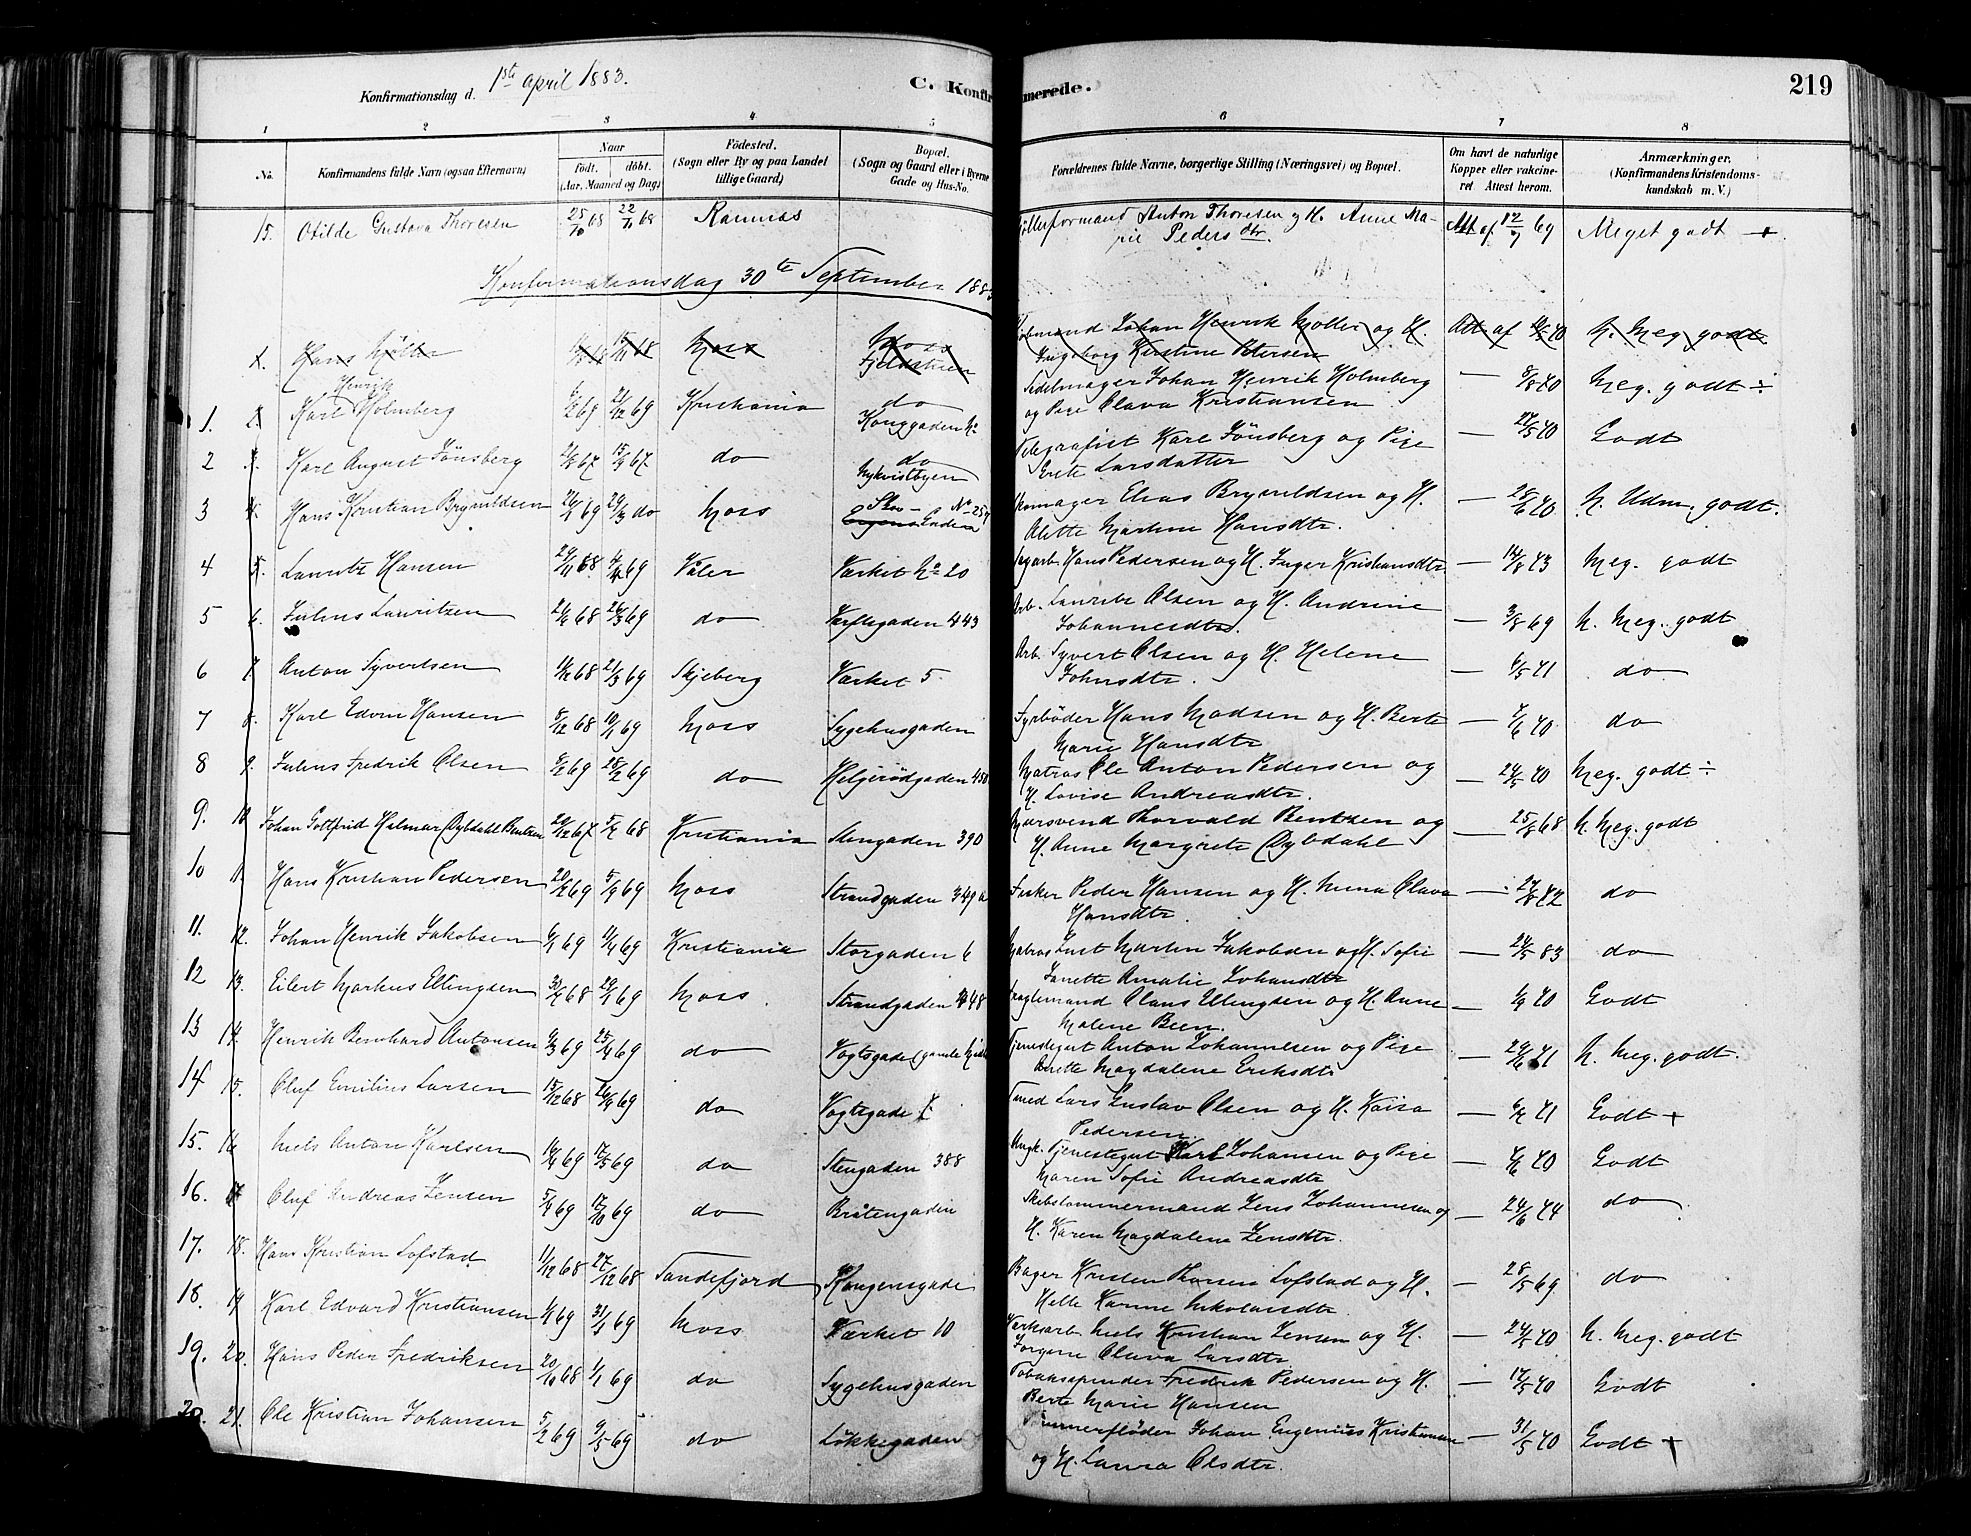 Konfirmationsdag d. 1ste April 1883.
C. Konfirmerede.
219
1 2 3 4 5 6 7 8
No. Konfirmandens fulde Navn (ogsaa Efternavn) Naar født. døbt. (Aar, Maaned og Dag) Fødested. (Sogn eller By og paa Landet tillige Gaard) Bopæl. (Sogn og Gaard eller i Byerne Gade og Hus-No. Forældrenes fulde Navne, borgerlige Stilling (Næringsvei) og Bopæl. Om havt de naturlige Kopper eller vakcineret Attest herom. Anmærkninger. (Konfirmandens Kristendomskundskab m. V.)
15. Otilde Gustava Thoresen 25/10 68 22/11 68 Ramnæs Anton Thoresen og H. Anne Marie Peders Dtr. Att af 12/7 69 Meget godt +
Konfirmationsdag 30te September 1883
1. Hans Møller Moss Moss Fjeldstuen Johan Henrik Møller og H. Att af 70 N. Meg godt
Ingeborg Kirstine Petersen
1. 2. Karl Henrik Holmberg 69 69 Kristiania do Konggaden No Sedelmager Johan Henrik Holmberg — 8/8 70 Meg. godt ÷
og Pige Olava Kristiansen
2 3. Karl August Jönsberg 67 67. do do Nykvistbyen Telegrafist Karl Jönsberg og Pige — 27/5 70 Godt
Erite Larsdatter
3 4. Hans Kristian Brynildsen 69 29/3 do Moss Skogaden No 254 Skomager Elias Brynildsen og H. — 28/6 70 N. Udm. godt.
Alette Martine Hansdtr.
4 5. Lauritz Hansen 29/11 68 69 Våler Værket No 20 Hans Pedersen og H. Inger Kristiansdtr. — 14/8 73 Meg. godt
5 6. Julius Lauritzen 68 69 do Værftsgaden 443 Arb. Lauritz Olsen og H. Andrine — 3/8 69 N. Meg. godt
Johannesdtr.
6 7. Anton Syvertsen 68 21/3 69 Skjeberg Værket 5. Arb. Syvert Olsen og H. Helene — 6/5 71 do
Johnsdtr.
7 8. Karl Edvin Hansen 8/12 68 10/1 69 Moss Sygehusgaden Fyrbøder Hans Madsen og H. Berte — 70 do
Marie Hansdtr
8 9. Julius Fredrik Olsen 69 28/2 69 do Helgerødgaden 450 Matros Ole Anton Pedersen og — 24/5 70 Meg. godt ÷
H. Lovise Andreasdtr.
9. 10 Johan Gottfrid Halmar Dybdahl Bentzen 29/12 67 68 Kristiania Stengaden 390 Thorvald Bentzen og — 25/8 68 N. Meg. godt
H. Anne Margrete Dybdahl
10 11. Hans Kristian Pedersen 69 69 Moss Strandgaden 349 a Fisker Peder Hansen og H. Mina Olava — 72 do
Hansdtr.
11. 12. Johan Henrik Jakobsen 69 11/4 69 Kristiania Storgaden 6 Matros Martin Jakobsen og H. Sofie — 83 do
Janette Amalie Johansdtr
12 13. Eilert Markus Ellingsen 68 69 Moss. Strandgaden 448 Claus Ellingsen og H. Anne — 70 Godt
Malene Been.
13 14. Henrik Bernhard Antonsen 69 25/4 69 do Vogtsgade (gamle Tjenestegut Anton Johannesen og Pige — 29/6 71 N. Meg. godt.
Magdalene Eriksdtr
14 15. Oluf Emilius Larsen 15/12 68 69 do Vogtsgade Lars Gustav Olsen og H. Kaisa — 71 Godt +
Pedersen
15. 16 Niels Anton Karlsen 69 17/5 69 do Stengaden 388 Tjenestegut Karl Johansen og Pige — 70 Godt
Maren Sofie Andreasdtr
16. 17 Oluf Andreas Jensen 5/4 69 17/10 69 do Bråtengaden Skibstømmermand Jens Johannesen og — 24/6 74 do
H. Karen Magdalene Jensdtr.
17. 18. Hans Kristian Lofstad 11/12 68 27/12 68 Sandefjord Kongensgade Bager Kristen Thorsen Lofstad og H. — 28/5 69 do
Helle Karine Nikolaisdtr.
18. 19 Karl Edvard Kristiansen 69 31/ 69 Moss Værket 10 Verksarb. Niels Kristian Jensen og H. — 24/5 70 N. Meg. godt
Jørgine Olava Larsdtr
19. 20. Hans Peder Fredriksen 20/10 68 69 do Sygehusgaden Tobaksspinder Fredrik Pedersen og H. — 17/5 70 Godt
Berte Marie Hansen
20. 21. Ole Kristian Johansen 5/2 69 9/5 69 do Løkkegaden Tømmerfløder Johan Eugenius Kristiansen — 31/5 70 Godt +
og H. Laura Olsdtr.